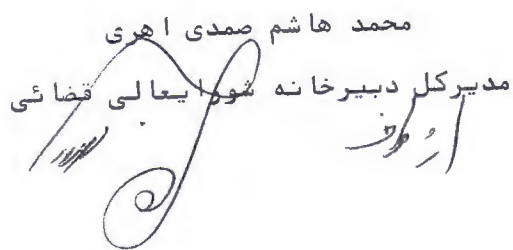 محمد هاشم صمدی اهری
مدیرکل دبیرخانه شورایعالی قضائی